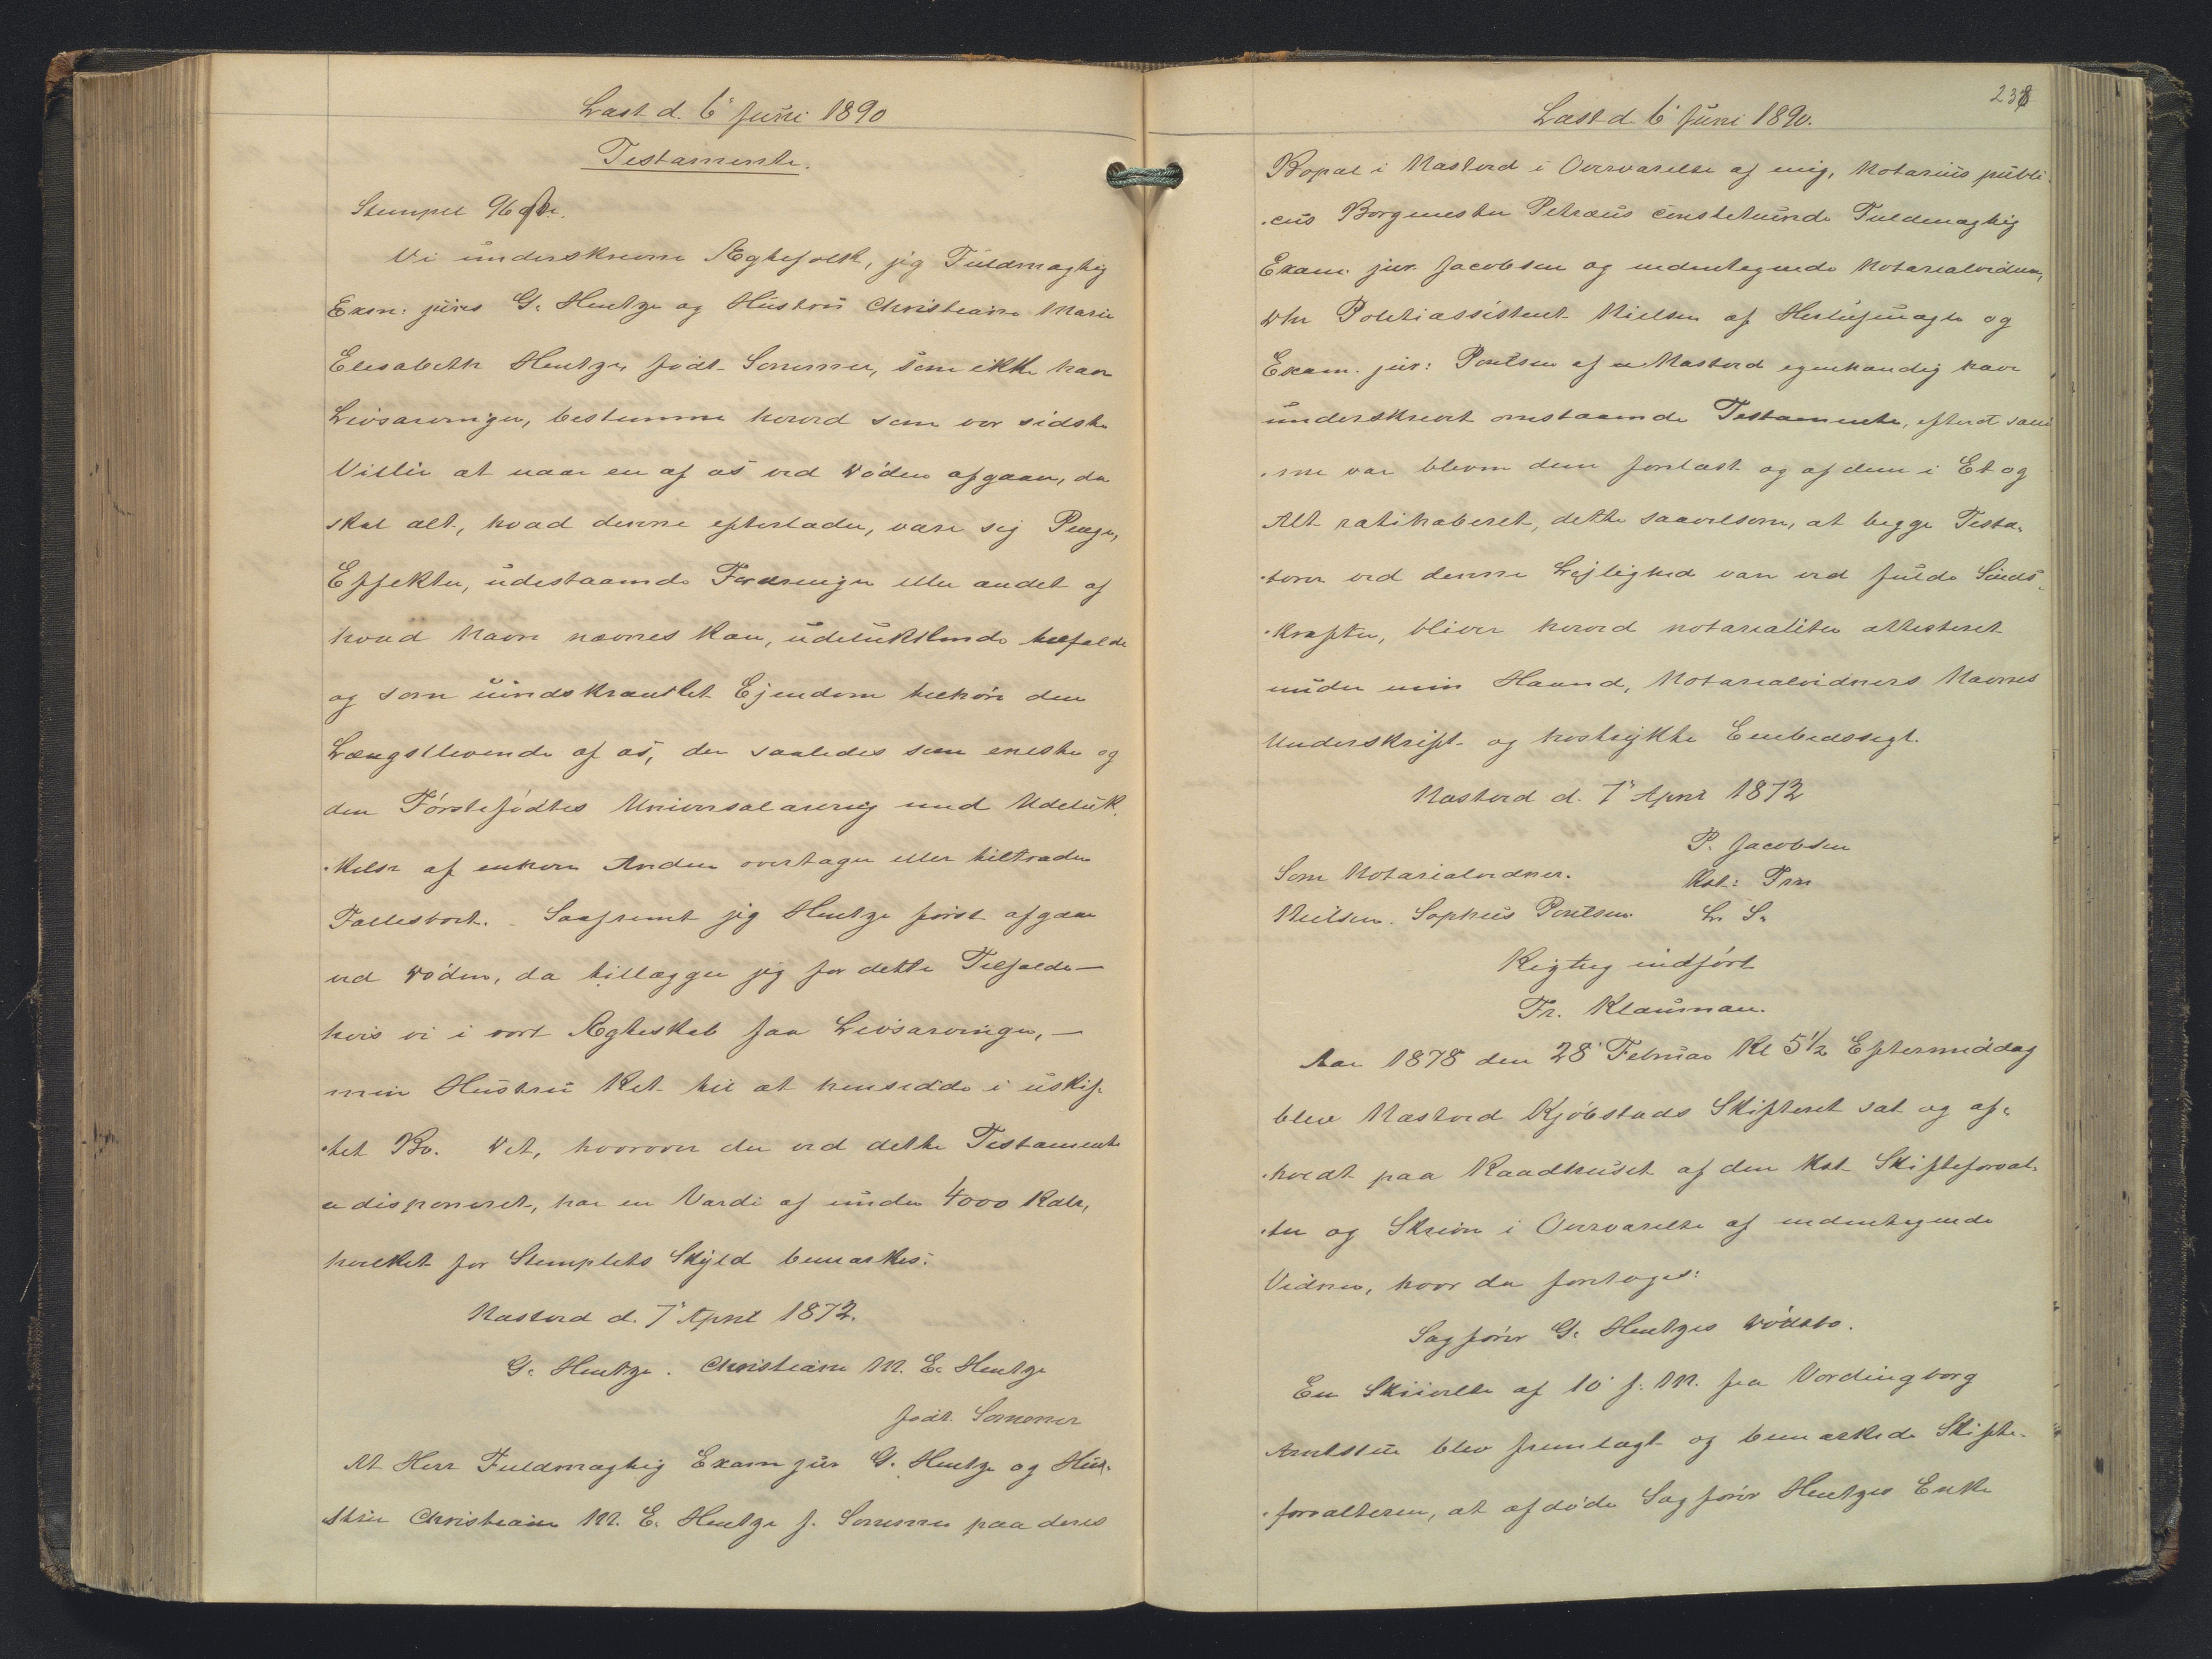 Læst d. 6' Juni 1890
Testamente.
Stempel 96 sk.
Vi underskrevne Ægtefolk, jeg Fuldmægtig
Exm: juris G. Hentze og Hustru Christiane Marie
Elisabeth Hentze, født Sommer, som ikke have
Livsarvinger, bestemme herved som vor sidste
Villie at naar en af os ved Døden afgaar, da
skal alt, hvad denne efterlader, være sig Penge,
Effekter, udestaaende Fordringer eller andet af
hvad Navn nævnes kan, udelukkende tilfalde
og som uindskrænket Ejendom tilhøre den
Længstlevende af os, der saaledes som eneste og
den Førstefødtes Universalarving med Udeluk-
-kelse af enhver Anden overtager eller tiltræder
Fællesboet. Saafremt jeg Hentze først afgaar
ved Døden, da tillægger jeg for dette Tilfælde –
hvis vi i vort Ægteskab faa Livsarvinger, –
min Hustru Ret til at hensidde i uskif-
-tet Bo. Det, hvorover der ved dette Testamente
er disponeret, har en Værdi af under 4000 Rdlr,
hvilket for Stemplets Skyld bemærkes.
Næstved d. 7' April 1872.
G. Hentze. Christiane M. E. Hentze
født Sommer
At Herr Fuldmægtig Exam jur G. Hentze og Hu-
stru Christiane M. E. Hentze f. Sommer paa deres
238
Læst d. 6' Juni 1890.
Bopæl i Næstved i Overværelse af mig, Notarius publi-
-cus Borgmester Petræus constituerede Fuldmægtig
Exam. jur. Jacobsen og undertegnede Notarialvidner,
Dhr Politiassistent Nielsen af Herlufmagle og
Exam. jur: Poulsen af Næstved egenhændig have
underskrevet omstaaende Testamente, efterat sam-
-me var bleven dem forelæst og af dem i Et og
Alt ratihaberet, dette saavelsom, at begge Testa-
-torer ved denne Lejlighed vare ved fulde Sinds-
-kræfter, bliver herved notarialiter attesteret
under min Haand, Notarialvidners Navnes
Underskrift og hostrykte Embedssegl.
Næstved d. 7' April 1872
P. Jacobsen
Som Notarialvidner. Kst: Frm
Nielsen. Sophus Poulsen L. S.
Rigtig indført
Fr. Klauman.
Aar 1878 den 28' Februar Kl 5½ Eftermiddag
blev Næstved Kjøbstads Skifteret sat og af-
-holdt paa Raadhuset af den kst Skifteforval-
-ter og Skriver i Overværelse af undertegnede
Vidner, hvor da foretoges:
Sagfører G. Hentzes Dødsbo.
En Skrivelse af 10' f: M. fra Vordingborg
Amtstue blev fremlagt og bemærkede Skifte-
-forvalteren, at afdøde Sagfører Hentzes Enke